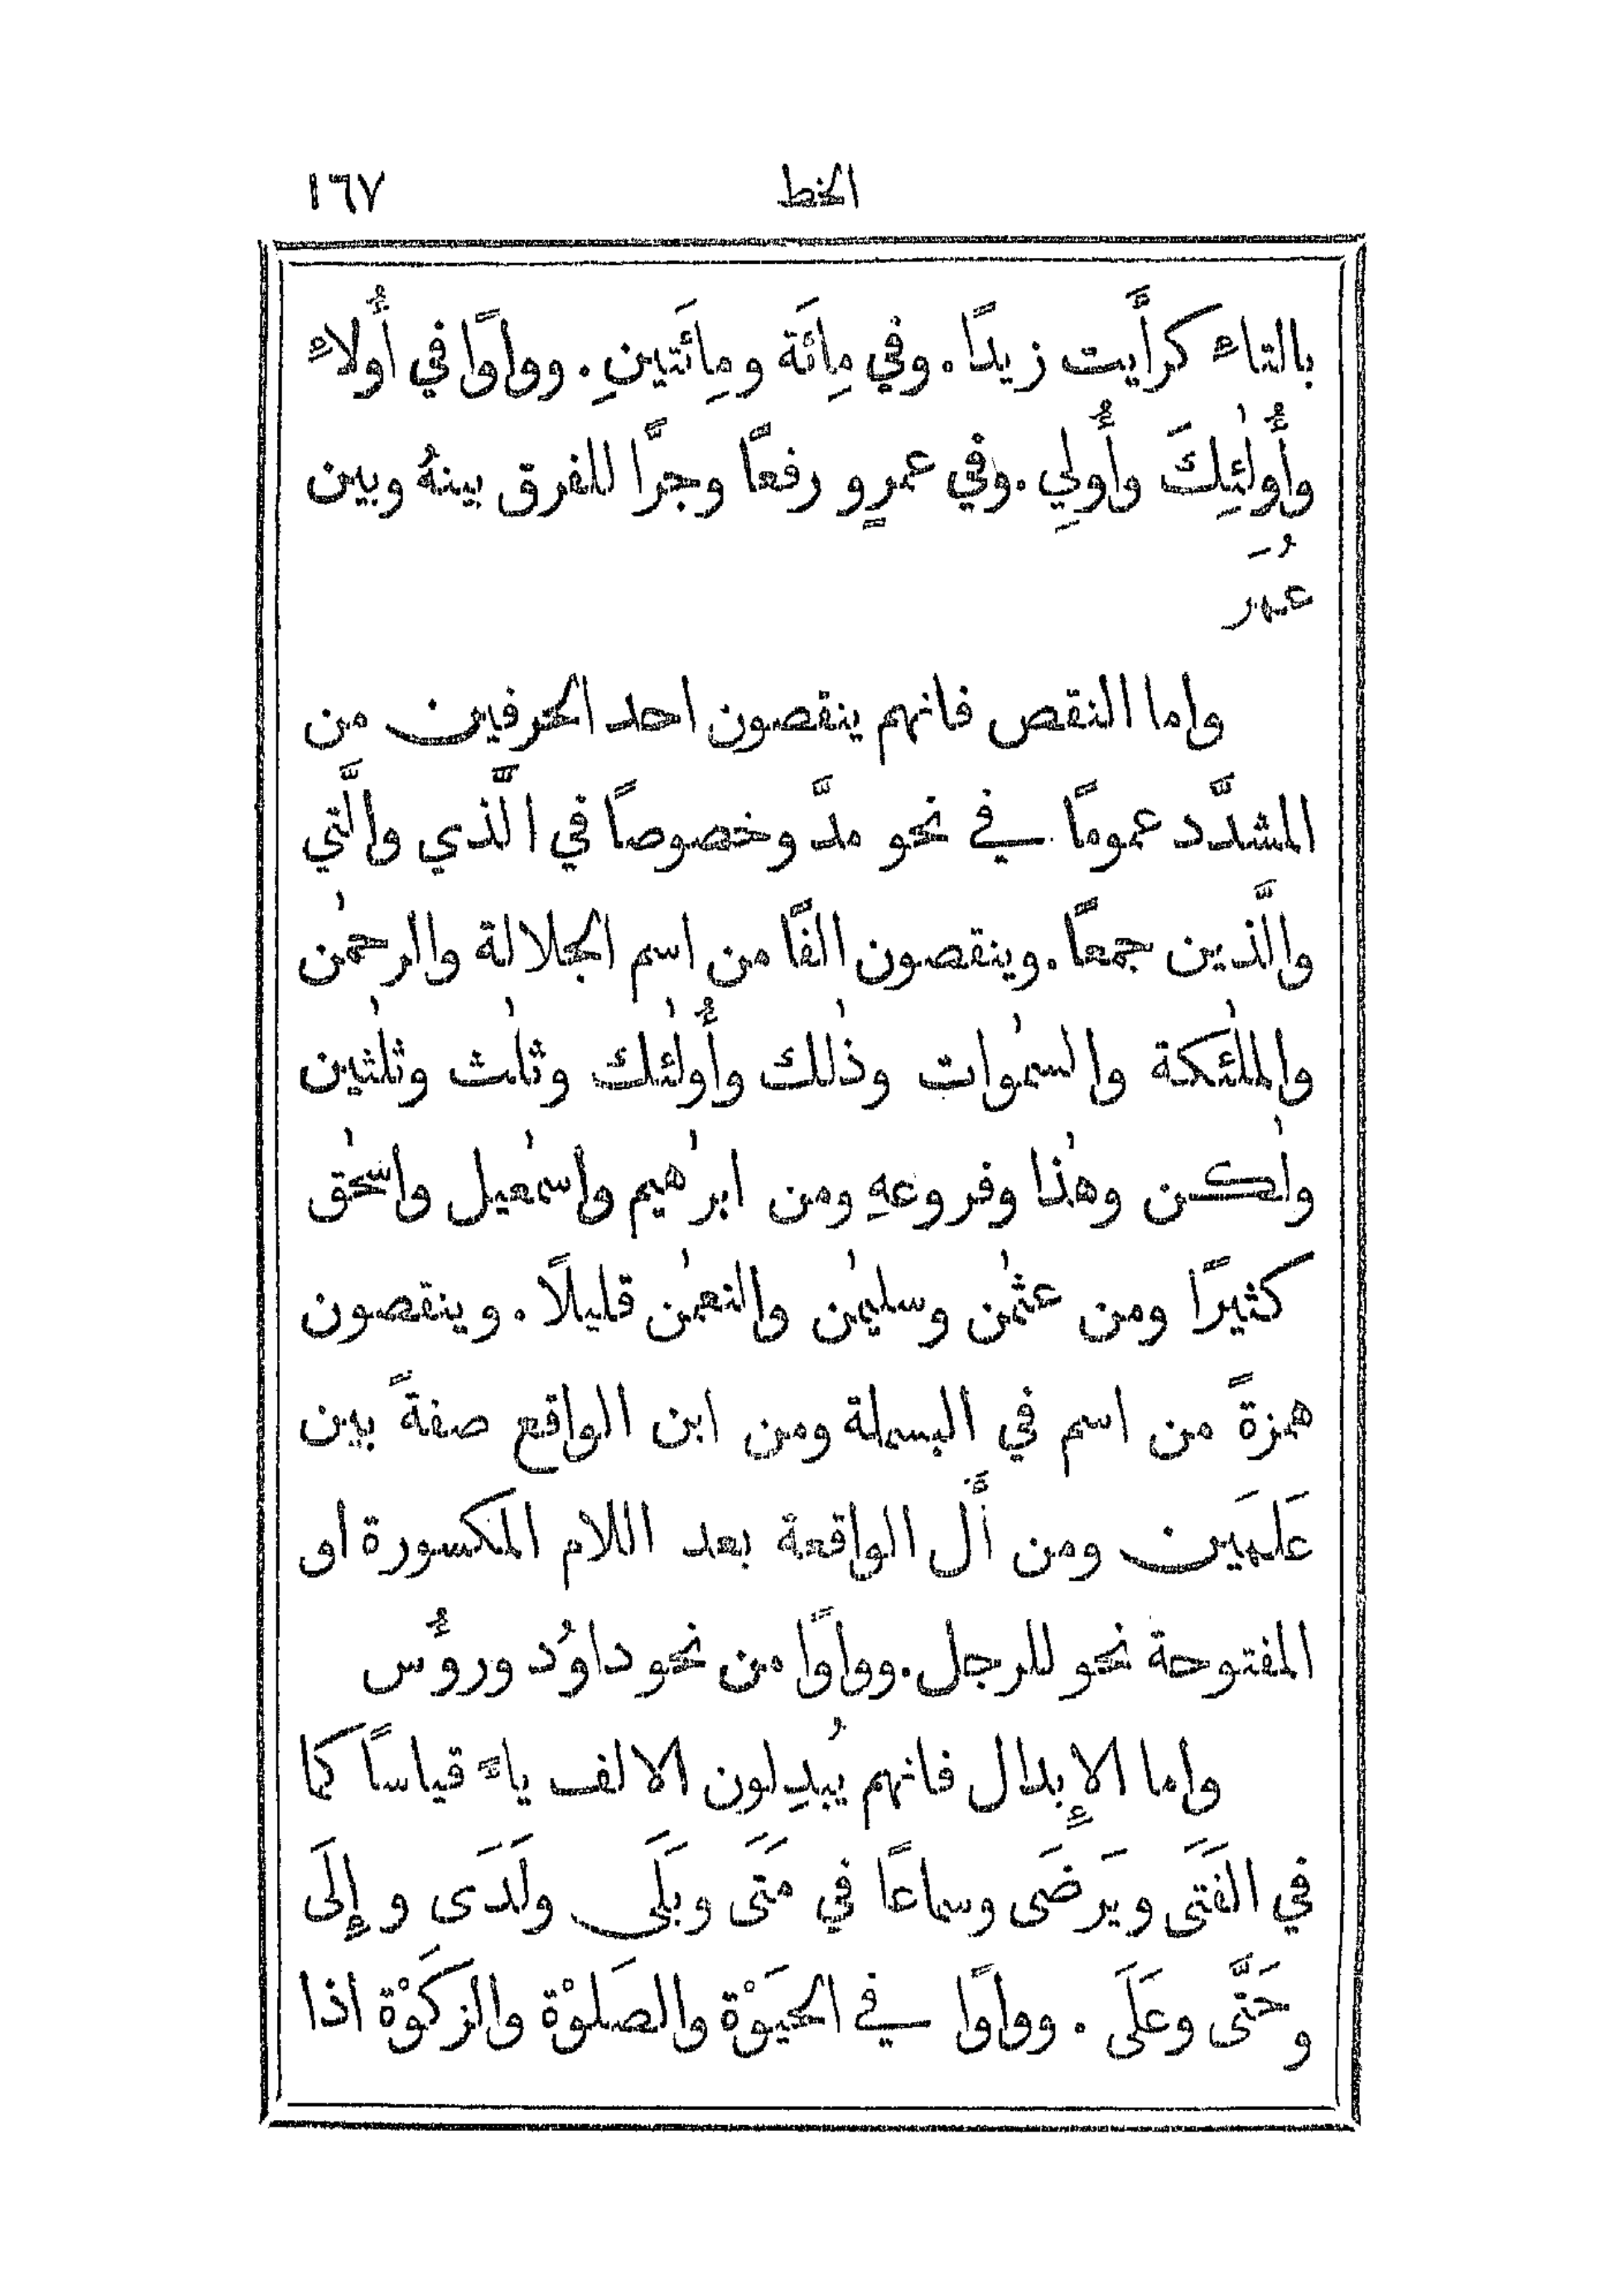 الخط ١٦٧
بالتاء كرأَيت زيدًا. وفي مِائَة ومِائَتينِ. وواوًا في أُولاء
وأُولٰئِكَ وأُولِي. وفي عمرٍو رفعًا وجرًّا للفرق بينهُ وبين
عُمَر
واما النقص فانهم ينقصون احد الحرفين من
المشدَّد عمومًا في نحو مدَّ وخصوصًا في الَّذي والَّتي
والَّذين جمعًا. وينقصون الفًا من اسم الجلالة والرحمٰن
والملٰئكة والسمٰوات وذٰلك وأُولٰئك وثلٰث وثلٰثين
ولٰكن وهٰذا وفروعهِ ومن ابرٰهيم واسمٰعيل واسحٰق
كثيرًا ومن عثمٰن وسليمٰن والنعمٰن قليلًا. وينقصون
همزةً من اسم في البسملة ومن ابن الواقع صفةً بين
عَلَمَين ومن أَل الواقعة بعد اللام المكسورة او
المفتوحة نحو للرجل. وواوًا من نحو داوُد ورؤُس
واما الإِبدال فانهم يُبدِلون الالف ياءً قياسًا كما
في الفَتَى ويَرضَى وسماعًا في مَتَى وبَلَى ولَدَى وإِلَى
وحَتَّى وعَلَى. وواوًا في الحيَوْة والصلَوْة والزكَوْة اذا